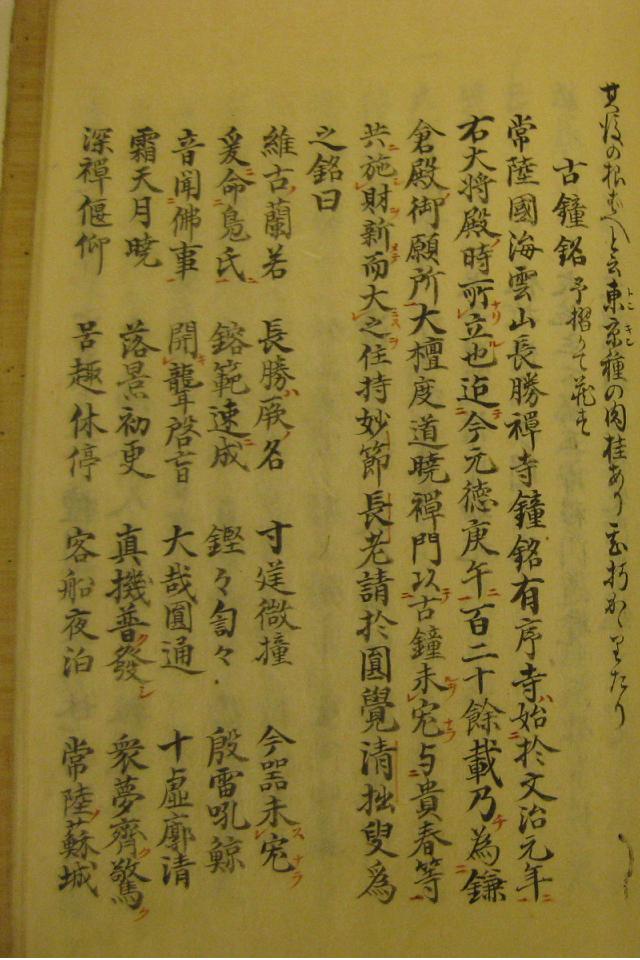 其後の根ばへと云東京種の肉桂あり
古鐘銘 予摺りて花す
常陸國海雲山長勝禪寺鐘銘有序寺始於文治元年
右大将殿時所立也迄今元德庚午百二十餘載乃為鎌
倉殿御願所大檀度道曉禪門以古鐘未宏与貴春等
共施財新而大之住持妙節長老請於圓覺清拙叟為
之銘曰
維古蘭若 長勝厥名 寸莛微撞 今器未宏
爰命鳧氏 鎔範速成 鏗々訇々 殷雷吼鯨
音聞佛事 開聾啓盲 大哉圓通 十虛廓清
霜天月曉 落景初更 真機普發 衆夢齊驚
深禪偃仰 苦趣休停 客船夜泊 常陸蘇城